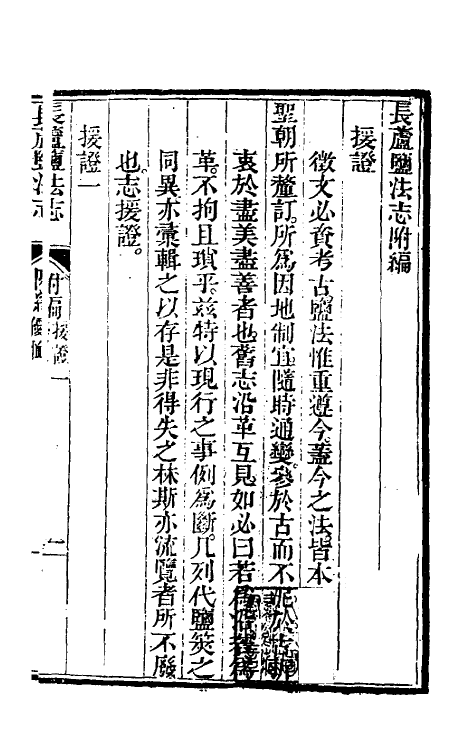 長蘆鹽法志附編
援證
徵文必資考古鹽法惟重遵今蓋今之法皆本
聖朝所釐訂所爲因地制宜隨時通變參於古而不泥於古折
衷於盡美盡善者也舊志沿革互見如必曰若爲沿若爲
革不拘且瑣乎茲特以現行之事例爲斷凡列代鹽筴之
同異亦彙輯之以存是非得失之林斯亦流覽者所不廢
也志援證。
援證一
長蘆鹽法志
附編 援證一
一